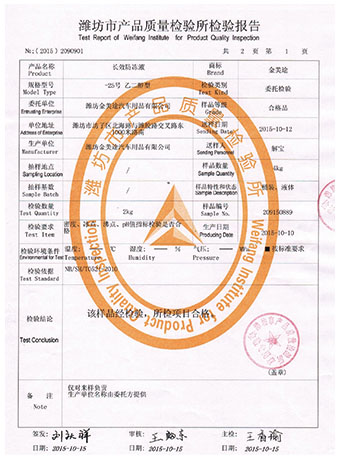 潍坊市产品质量检验所检验报告
Test Report of Weifang Institute for Product Quality Inspection
No:(2015)2090901 共 2 页 第 1 页
产品名称 长效防冻液 商标 金美途
Product Brand
规格型号 -25号 乙二醇型 检验类别 委托检验
Model Type Test Kind
委托单位 潍坊金美途汽车用品有限公司 样品等级 合格品
Entrusting Enterprise Grade
单位地址 潍坊市坊子区北海路与潍胶路交叉路东 送样日期 2015-10-12
Address of Enterprise 1000米路南 Sending Date
生产单位 潍坊金美途汽车用品有限公司 送样人 解宝
Manufacturer Sending Personnel
抽样地点 样品数量 4kg
Sampling Location Sample Quantity
抽样基数 样品特性和状态 桶装、液体
Sample Batch Sample Description
检验数量 2kg 样品编号 209150889
Test Quantity Sample No.
检验要求 密度、冰点、沸点、pH值指标检验是否合格 生产日期 2015-10-10
Test Item Producing Date
检验环境条件 温度: ℃ 湿度: % 气压: 按标准要求
Environmental for Test Temperature Humidity Pressure
检验依据 NB/SH/T0521-2010
Test Standard
检验结论 该样品经检验,所检项目合格。
Test Conclusion
(盖章)
备注 仅对来样负责
Note 生产单位名称由委托方提供
签发: 审核: 主检:
日期: 2015-10-15 日期: 2015-10-15 日期: 2015-10-15
潍坊市产品质量检验所
Weifang Institute for Product Quality Inspection